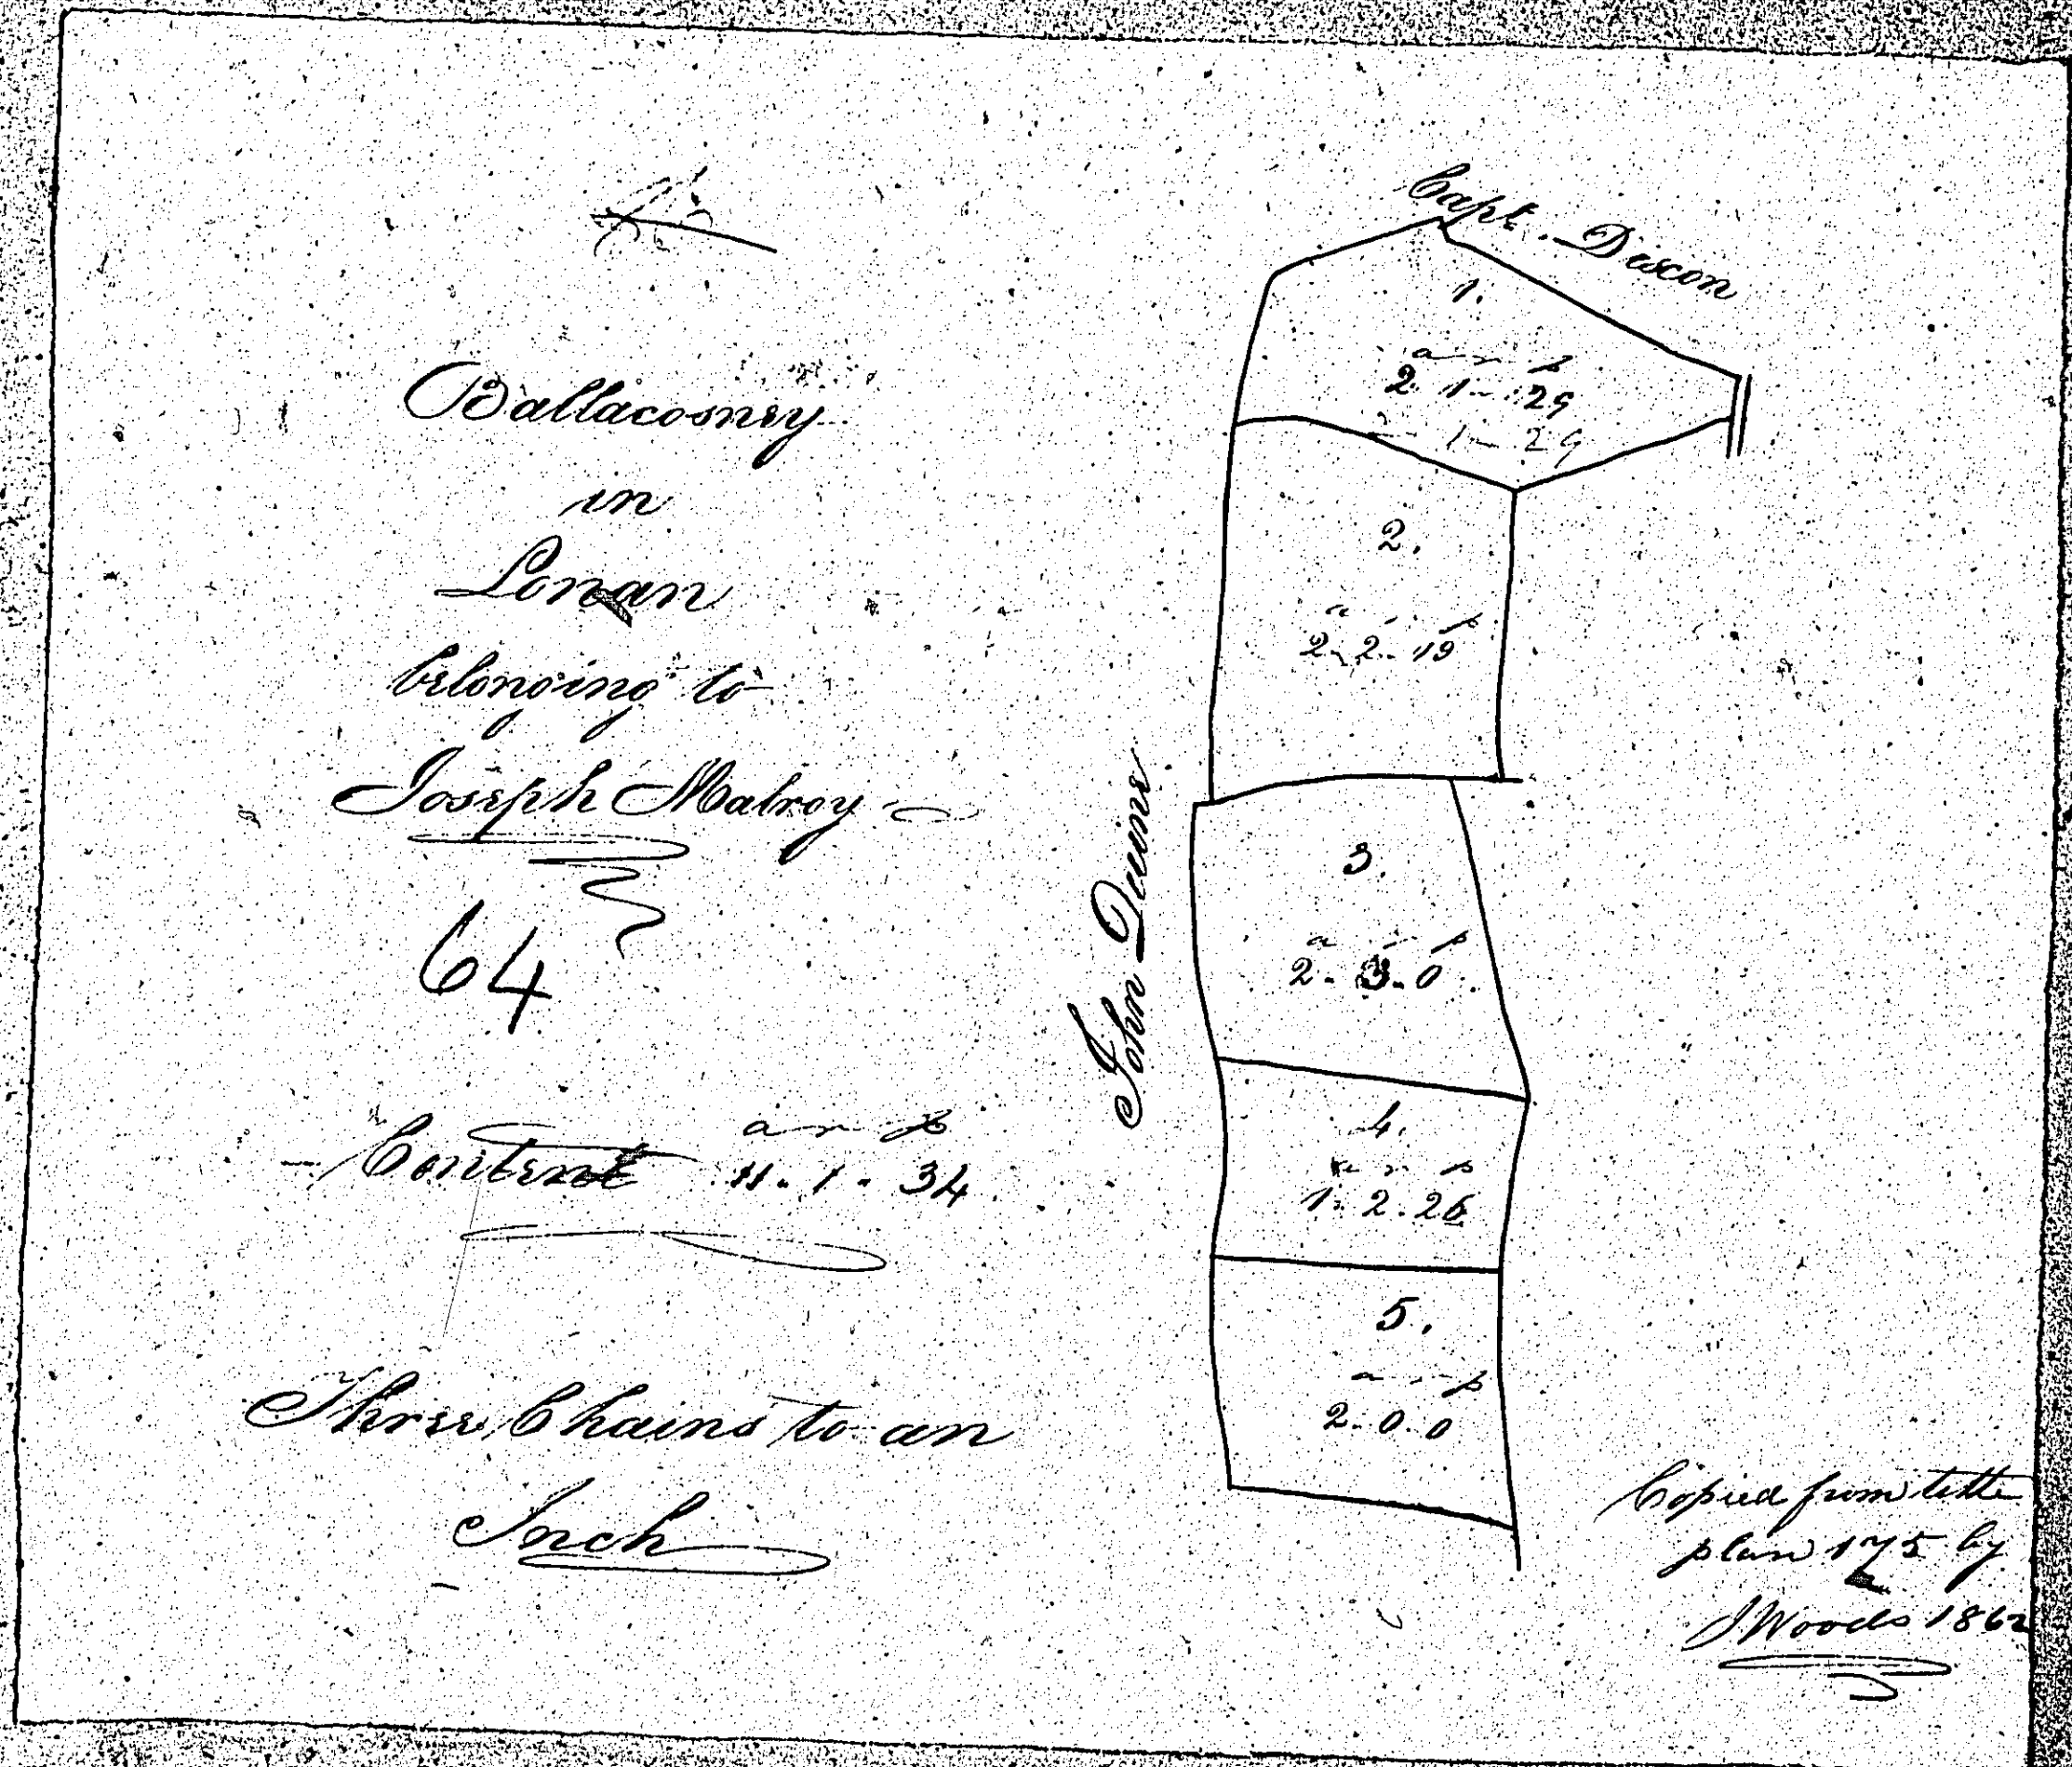 Ballacosney
in
Lonan
belonging to
Joseph Malroy
64
a r p
Content 11. 1. 34
Three Chains to an
Inch
Capt. Discon
John Quine
1.
a r p
2 1 - 29
2 - 1 - 29
2.
a r p
2. 2. 19
3.
a r p
2. 3. 0
4.
a r p
1. 2. 26
5.
a r p
2. 0. 0
Copied from tithe
plan 175 by
J Woods 1862